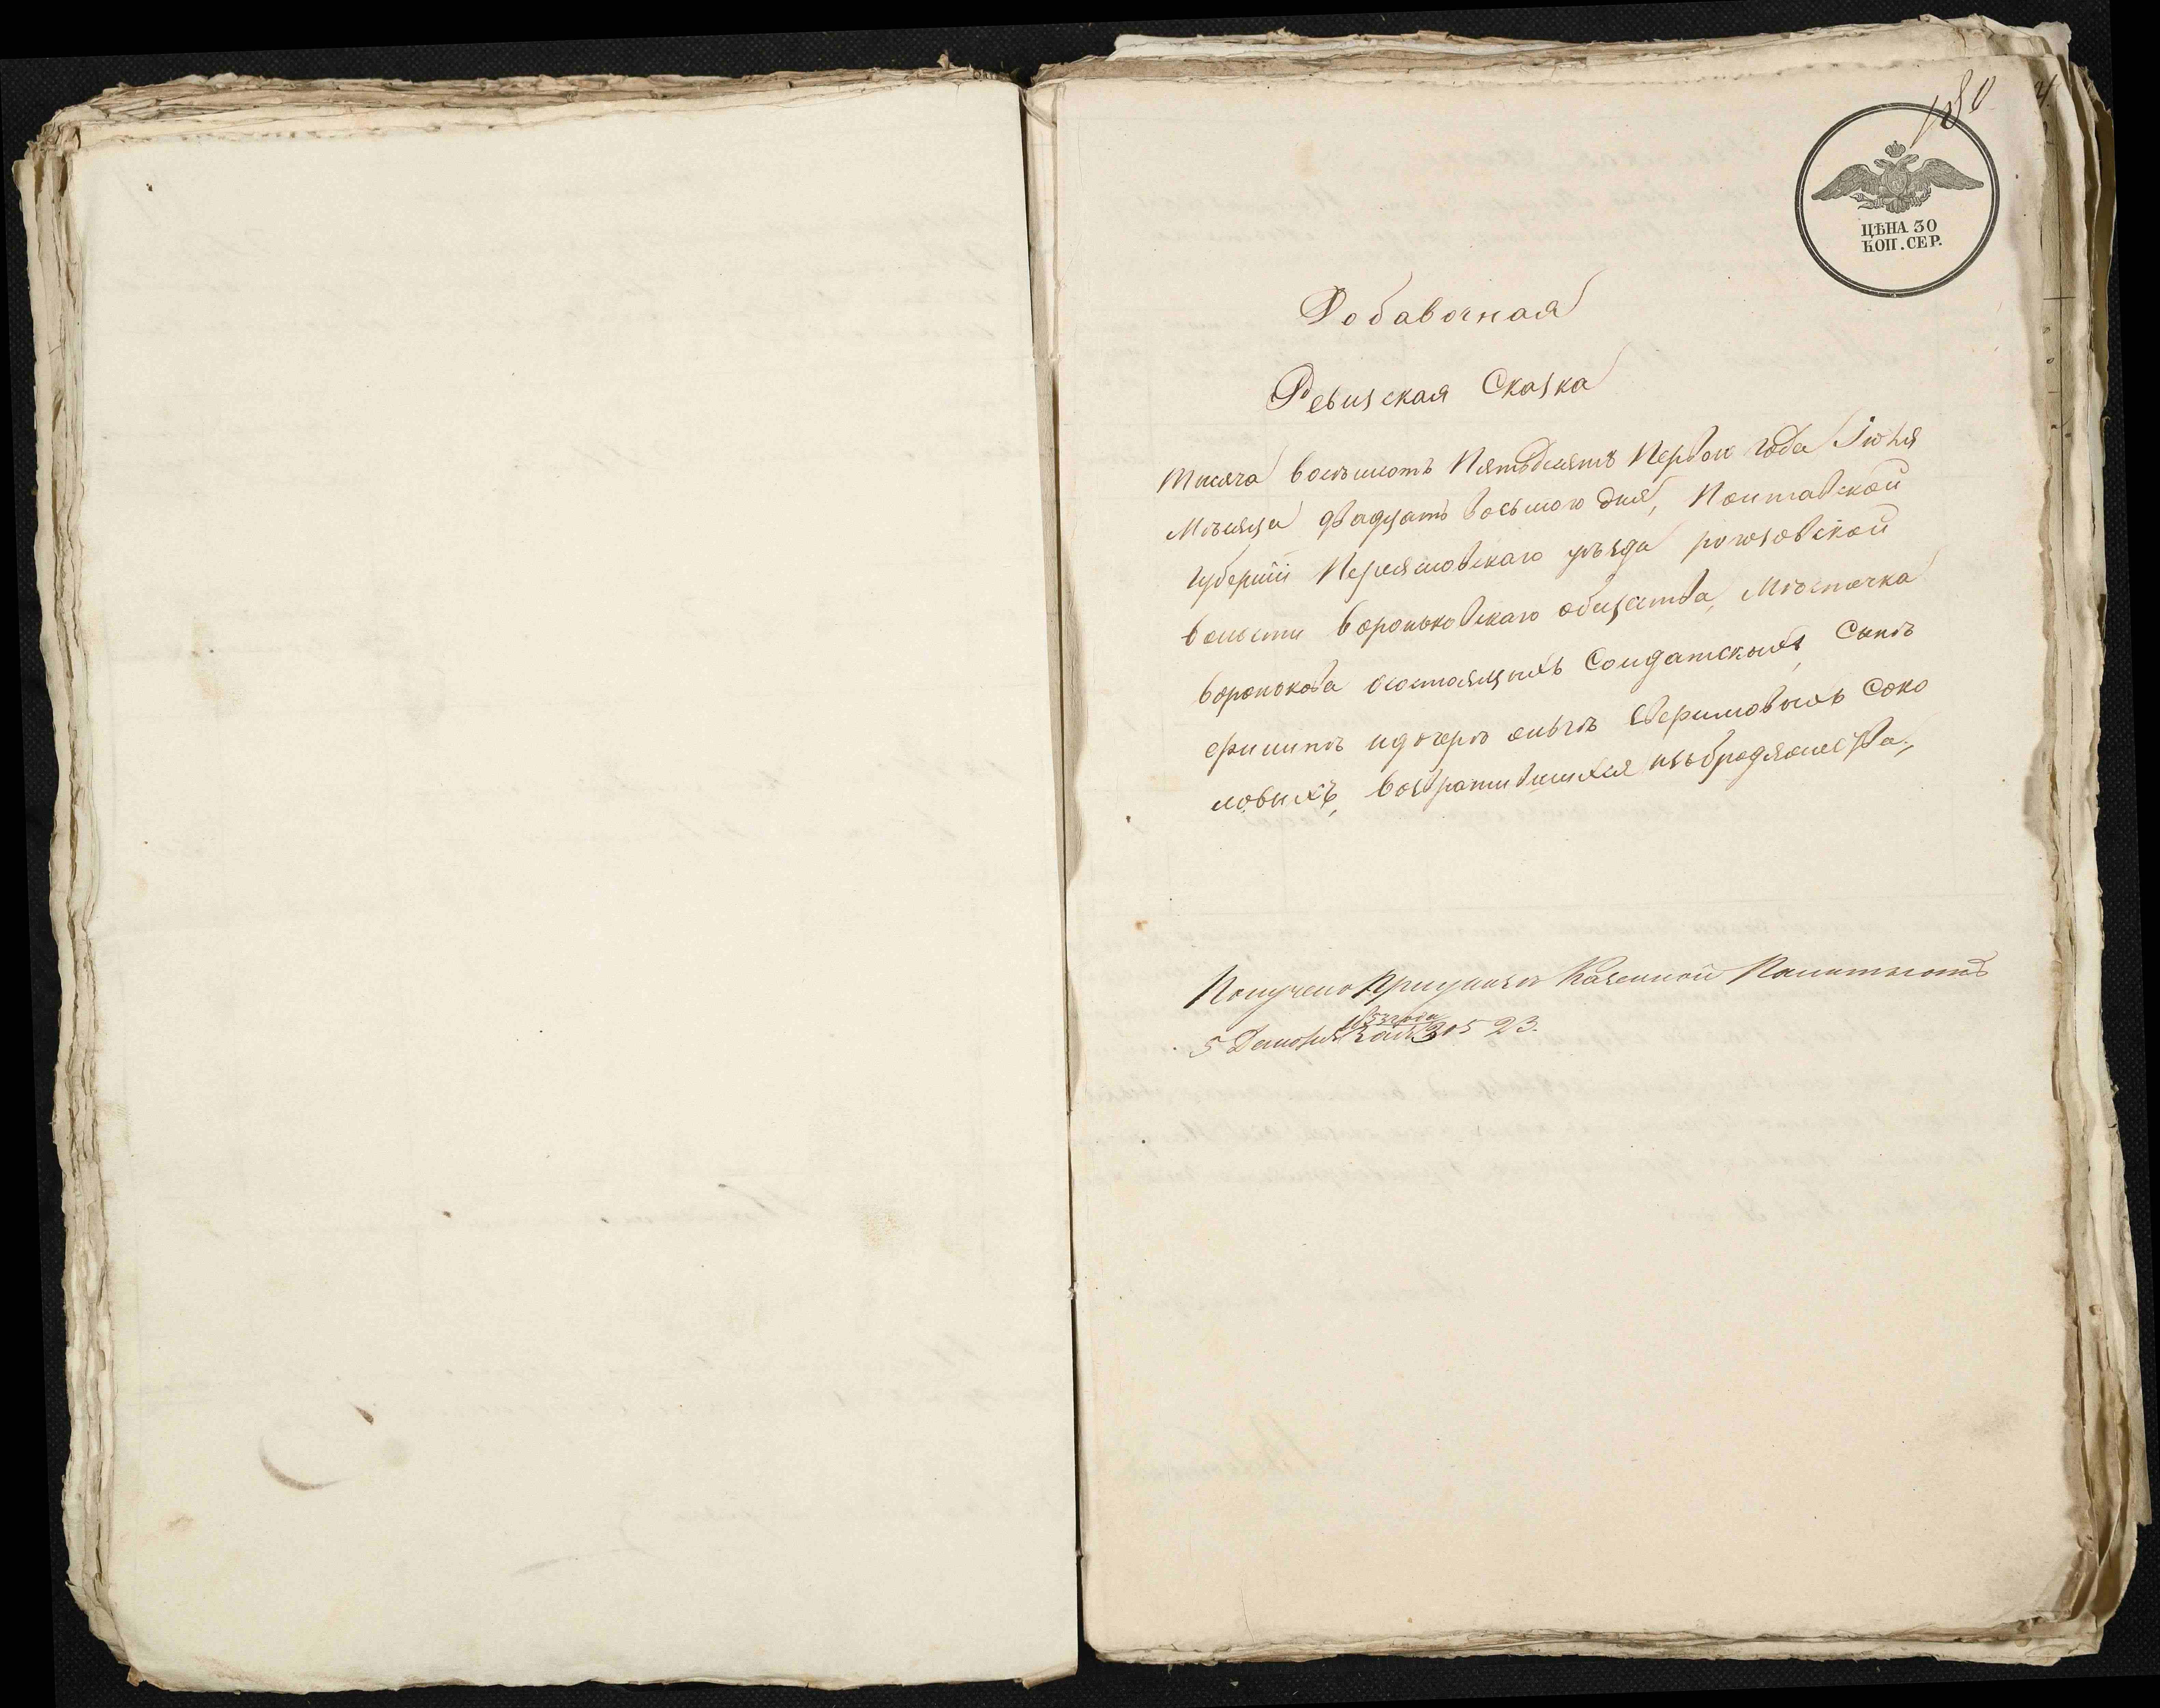 180
ЦѢНА 30
КОП. СЕР.
Добавочная
Ревизская Сказка
тысяча восемьсотъ Пятьдесятъ Первого года Іюня
Мѣсяца двадцать восьмого дня, Полтавской
губерніи Переяславскаго уѣзда рогозовской
волости вороньковскаго общества, Мѣстечка
воронькова осостоящихъ Солдатскихъ, Сынѣ
филипѣ идочерѣ ольгѣ Соко
ловыхъ, возвратившихся изъбродяжества,
Получено Казенной Палаты отъ
5 1853 года 30523.